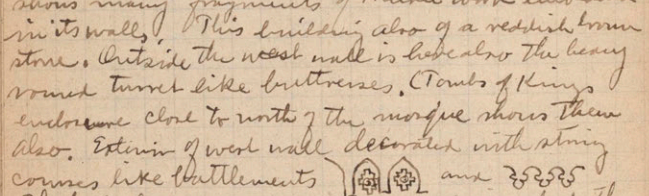 shows many fragments of
in its walls. This building also of a reddish brown
stone. Outside the west wall is here also the heavy
round turret like buttresses. (Tombs of Kings
enclosure close to north of the mosque shows them
also. Exterior of west wall decorated with string
courses like battlements and